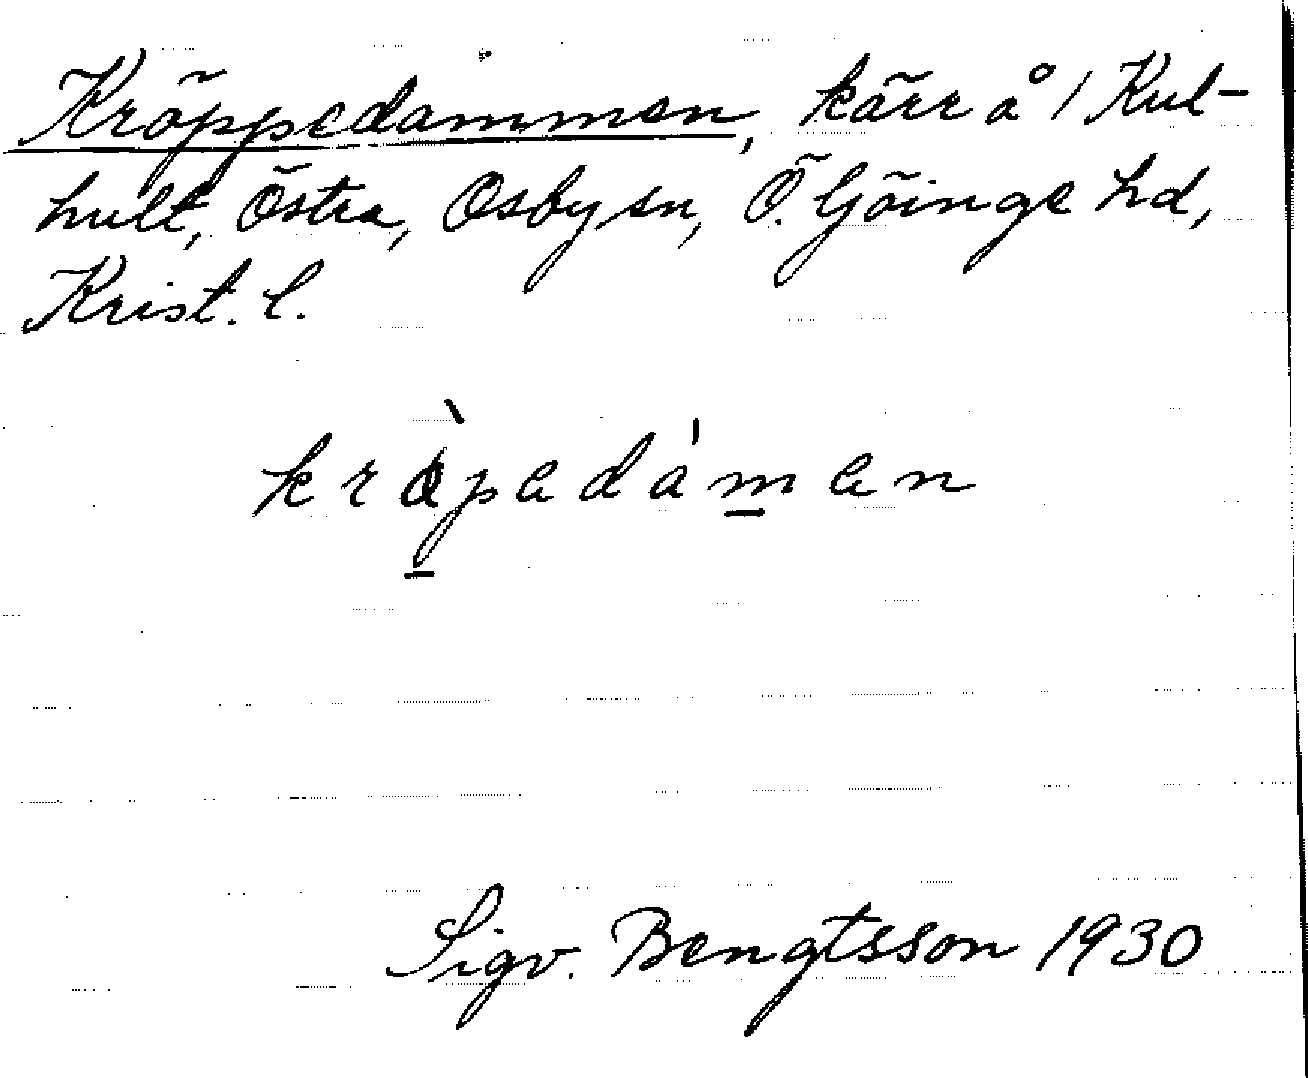 Kröppedammen, kärr å 1 Kul-
hult, Östra, Osby sn, Ö. Göinge hd,
Krist. l.
Sigv. Bengtsson 1930